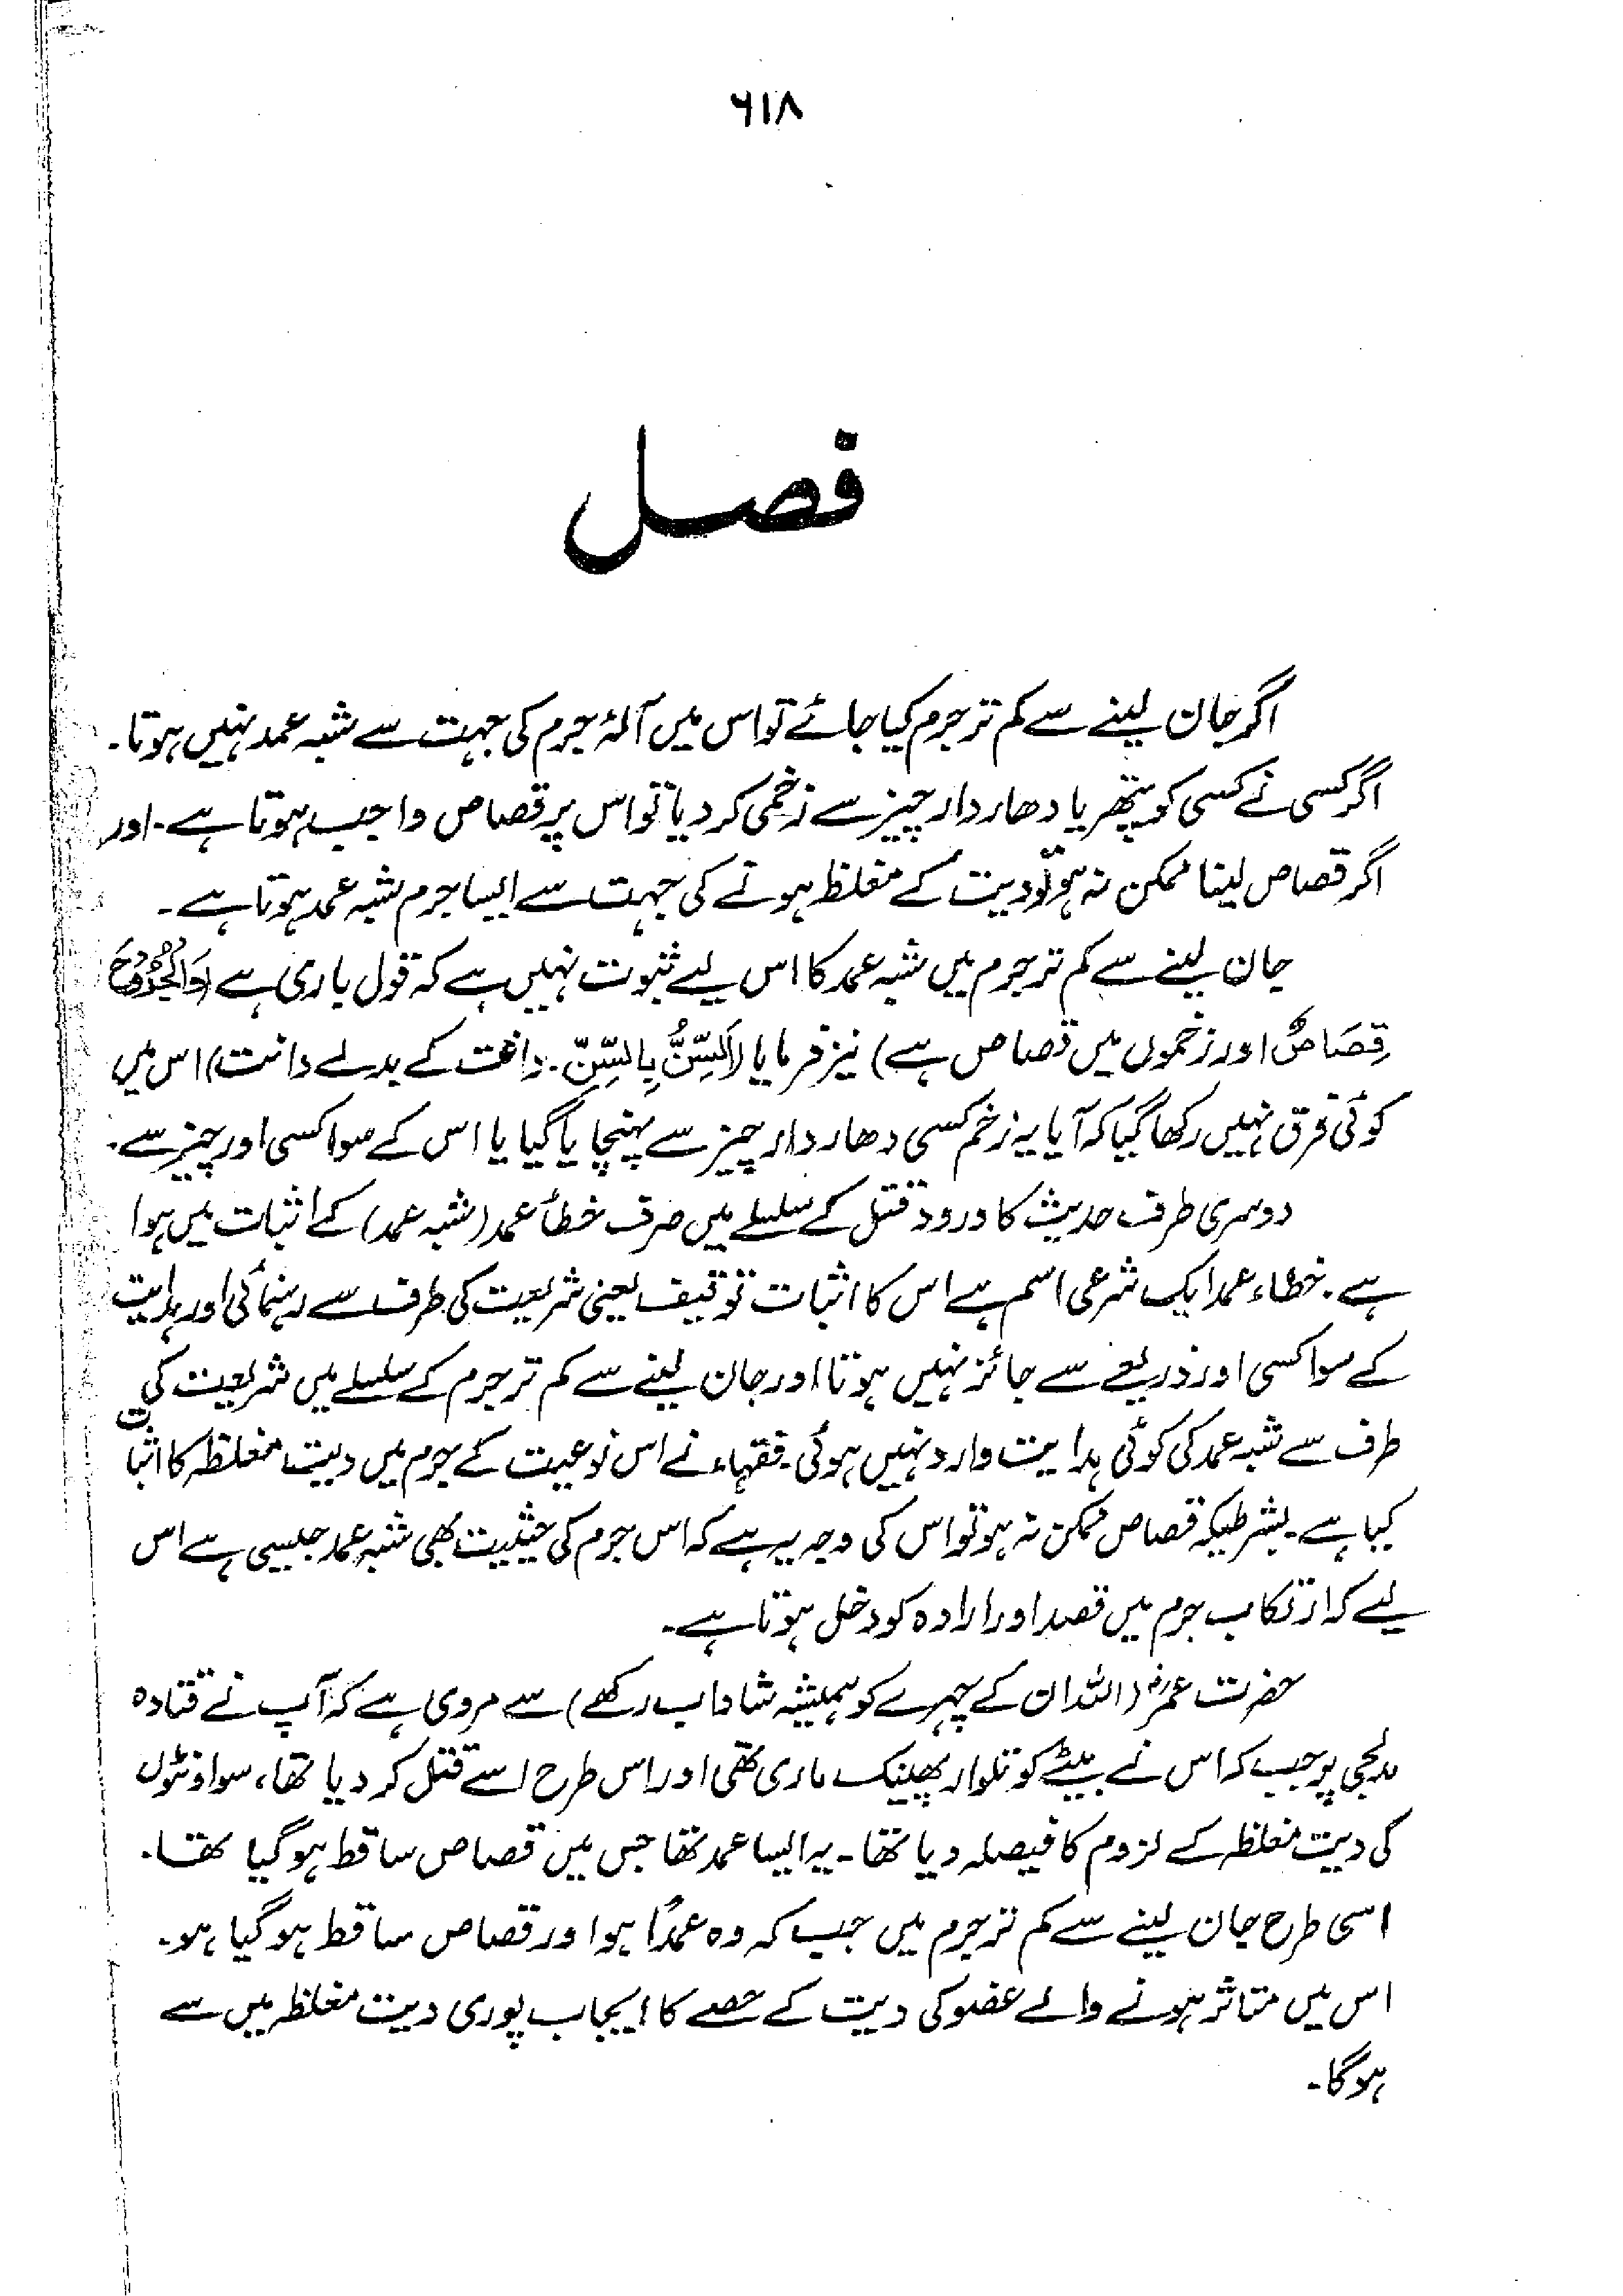 ۶۱۸
فصل
اگر جان لینے سے کم تر جرم کیا جائے تو اس میں آلۂ جرم کی جہت سے شبہ عمد نہیں ہوتا۔
اگر کسی نے کسی کو پتھر یا دھاردار چیز سے زخمی کر دیا تو اس پر قصاص واجب ہوتا ہے۔ اور
اگر قصاص لینا ممکن نہ ہو تو دیت کے مغلظ ہونے کی جہت سے ایسا جرم شبہ عمد ہوتا ہے۔
جان لینے سے کم تر جرم میں شبہ عمد کا اس لیے ثبوت نہیں ہے کہ قول باری ہے (وَالْجُرُوْحَ
قِصَاصٌ اور زخموں میں قصاص ہے) نیز فرمایا (اَلسِّنُّ بِالسِّنِّ۔ دانت کے بدلے دانت) اس میں
کوئی فرق نہیں رکھا گیا کہ آیا یہ زخم کسی دھاردار چیز سے پہنچایا گیا یا اس کے سوا کسی اور چیز سے۔
دوسری طرف حدیث کا ورود قتل کے سلسلے میں صرف خطأ عمد (شبہ عمد) کے اثبات میں ہوا
ہے۔ خطاء عمد ایک شرعی اسم ہے اس کا اثبات توقیف یعنی شریعت کی طرف سے رہنمائی اور ہدایت
کے سوا کسی اور ذریعے سے جائز نہیں ہوتا اور جان لینے سے کم تر جرم کے سلسلے میں شریعت کی
طرف سے شبہ عمد کی کوئی ہدایت وارد نہیں ہوئی۔ فقہاء نے اس نوعیت کے جرم میں دیت مغلظہ کا اثبات
کیا ہے۔ بشرطیکہ قصاص ممکن نہ ہو تو اس کی وجہ یہ ہے کہ اس جرم کی حیثیت بھی شبہ عمد جیسی ہے اس
لیے کہ ارتکاب جرم میں قصد اور ارادہ کو دخل ہوتا ہے۔
حضرت عمرؓ (اللہ ان کے چہرے کو ہمیشہ شاداب رکھے) سے مروی ہے کہ آپ نے قتادہ
مدلجی پر جب کہ اس نے بیٹے کو تلوار پھینک ماری تھی اور اس طرح اسے قتل کر دیا تھا، سو اونٹوں
کی دیت مغلظہ کے لزوم کا فیصلہ دیا تھا۔ یہ ایسا عمد تھا جس میں قصاص ساقط ہو گیا تھا۔
اسی طرح جان لینے سے کم تر جرم میں جب کہ وہ عمداً ہوا ور قصاص ساقط ہو گیا ہو۔
اس میں متاثر ہونے والے عضو کی دیت کے حصے کا ایجاب پوری دیت مغلظہ میں سے
ہو گا۔